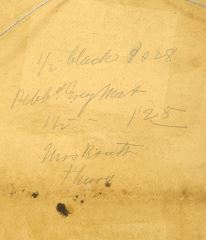 1/2 black 8 x 28
Pebbd Grey Mat
1 1/2 - 1 25
Mrs Routh
Thurs